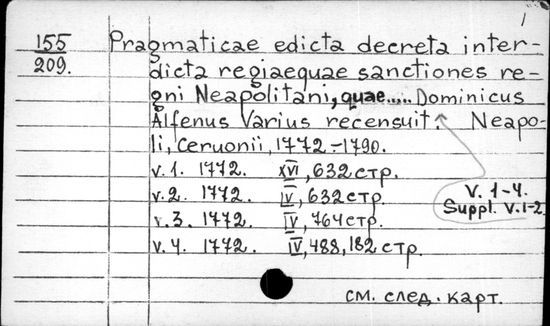 1
155 Pragmaticae edicta decreta inter-
209. dicta regiaequae sanctiones re-
gni Neapolitani, quae..... Dominicus
Alfenus Varius recensuit. Neapo-
li, Ceruonii, 1772.-1790.
v. 1. 1772. XVI, 632 стр.
v. 2. 1772. IV, 632 стр.
v. 3. 1772. IV, 764 стр.
v. 4. 1772. IV, 488, 182 стр.
V. 1-4.
Suppl. V. 1-2
см. след. карт.